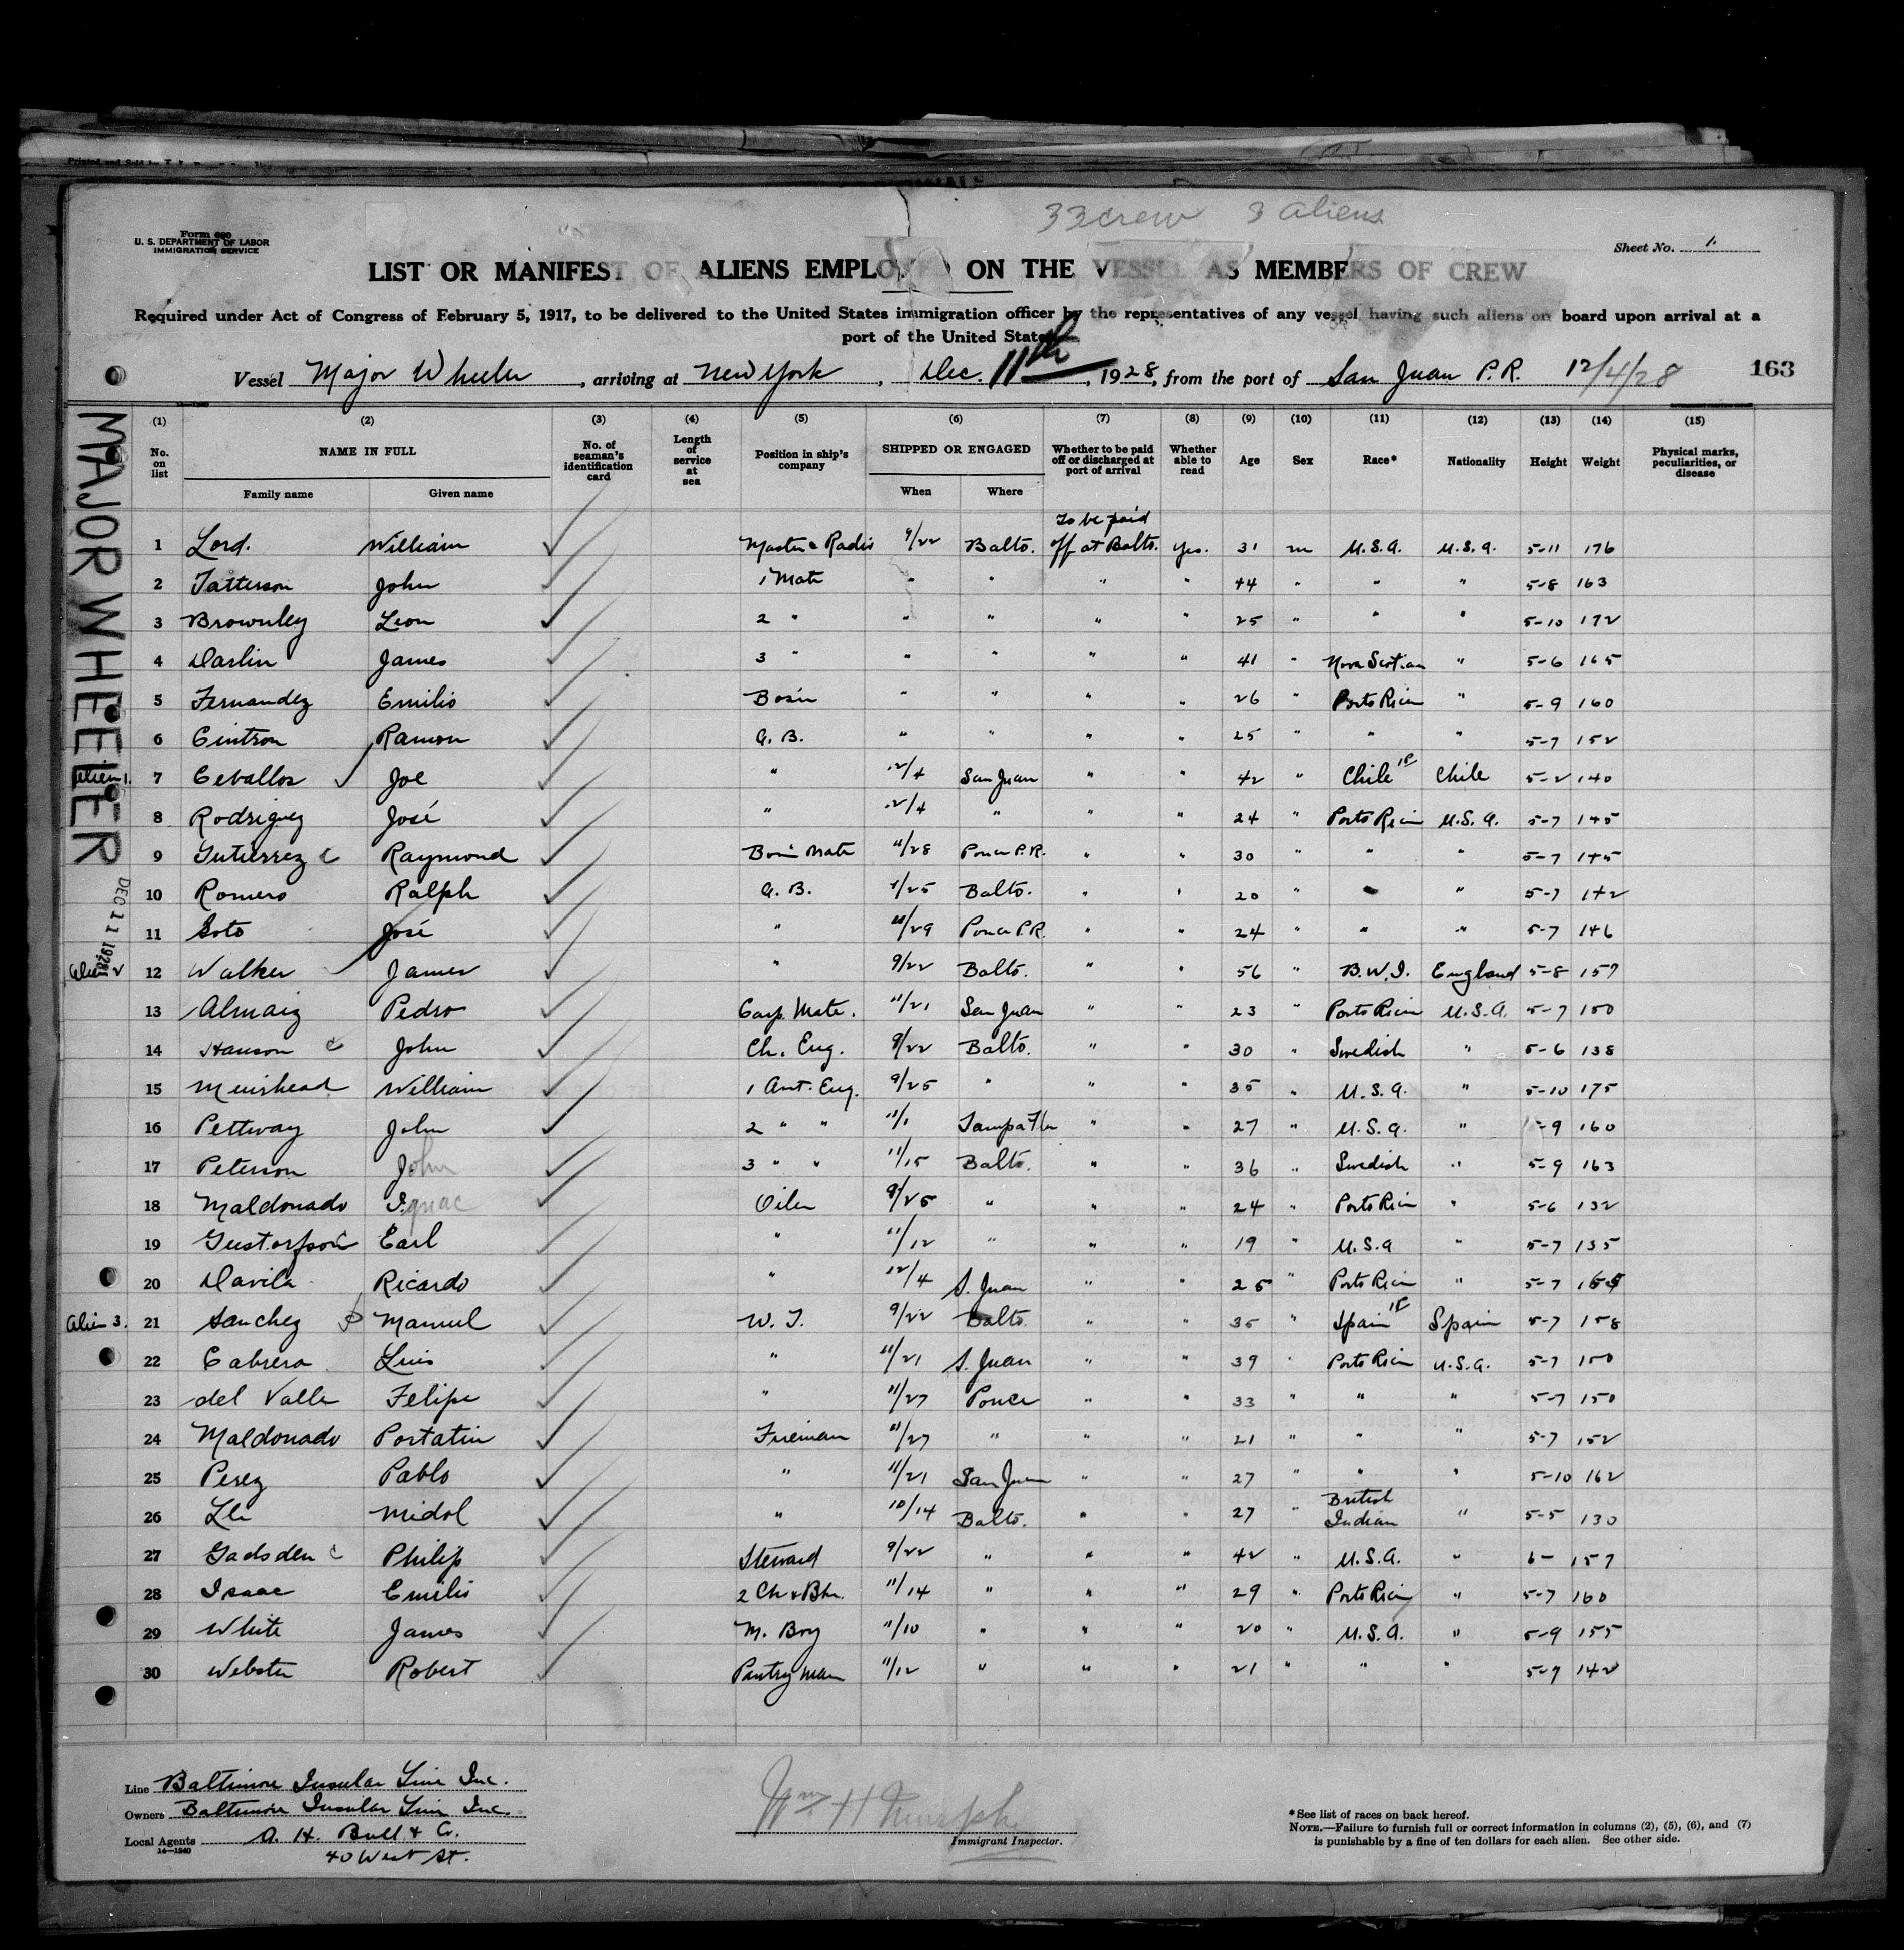 33 crew 3 aliens
Form 680
U. S. DEPARTMENT OF LABOR
IMMIGRATION SERVICE
Sheet No. 1.
LIST OR MANIFEST OF ALIENS EMPLOYED ON THE VESSEL AS MEMBERS OF CREW
Required under Act of Congress of February 5, 1917, to be delivered to the United States immigration officer by the representatives of any vessel having such aliens on board upon arrival at a
port of the United States
Vessel Major Wheeler, arriving at New York, Dec. 11th, 1928, from the port of San Juan P.R. 12/4/28 163
MAJOR WHEELER
DEC 11 1928
(1) (2) (3) (4) (5) (6) (7) (8) (9) (10) (11) (12) (13) (14) (15)
No. on list NAME IN FULL No. of seaman's identification card Length of service at sea Position in ship's company SHIPPED OR ENGAGED Whether to be paid off or discharged at port of arrival Whether able to read Age Sex Race* Nationality Height Weight Physical marks, peculiarities, or disease
Family name Given name When Where
1 Lord. William Master & Radio 9/22 Balto. To be paid off at Balto. yes. 31 m U.S.A. U.S.A. 5-11 176
2 Patterson John 1 Mate " " " " 44 " " " 5-8 163
3 Brownley Leon 2 " " " " " 25 " " " 5-10 172
4 Darlin James 3 " " " " " 41 " Nova Scotian " 5-6 165
5 Fernandez Emilio Bos'n " " " " 26 " Porto Rican " 5-9 160
6 Cintron Ramon A.B. " " " " 25 " " " 5-7 152
Alien 1. 7 Ceballos Joe " 12/4 San Juan " " 42 " Chile Chile 5-2 140
8 Rodriguez José " 12/4 " " " 24 " Porto Rican U.S.A. 5-7 145
9 Gutierrez c Raymond Bos'n Mate 11/28 Ponce P.R. " " 30 " " " 5-7 145
10 Romero Ralph A.B. /25 Balto. " " 20 " " " 5-7 142
11 Soto José " 11/29 Ponce P.R. " " 24 " " " 5-7 146
Alien 2 12 Walker James " 9/22 Balto. " " 56 " B.W.I. England 5-8 157
13 Almaiz Pedro Carp. Mate. 11/21 San Juan " " 23 " Porto Rican U.S.A. 5-7 150
14 Hanson c John Ch. Eng. 9/22 Balto. " " 30 " Swedish " 5-6 138
15 Muirhead William 1 Asst. Eng. 9/25 " " " 35 " U.S.A. " 5-10 175
16 Pettway John 2 " " 11/1 Tampa Fla " " 27 " U.S.A. " 5-9 160
17 Peterson John 3 " " 11/15 Balto. " " 36 " Swedish " 5-9 163
18 Maldonado Ignac Oiler 9/25 " " " 24 " Porto Rican " 5-6 132
19 Gustorfson Earl " 11/12 " " " 19 " U.S.A " 5-7 135
20 Davila Ricardo " 12/4 S. Juan " " 25 " Porto Rican " 5-7
Alien 3. 21 Sanchez Manuel W.T. 9/22 Balto " " 35 " Spain Spain 5-7 158
22 Cabrera Luis " 11/21 S. Juan " " 39 " Porto Rican U.S.A. 5-7 150
23 del Valle Felipe " 11/27 Ponce " " 33 " " " 5-7 150
24 Maldonado Portatin Fireman 11/27 " " " 21 " " " 5-7 152
25 Perez Pablo " 11/21 San Juan " " 27 " " " 5-10 162
26 Midol " 10/14 Balto. " " 27 " British Indian " 5-5 130
27 Gadsden c Philip Steward 9/22 " " " 42 " U.S.A. " 6- 157
28 Isaac Emilio 2 Ck & Bkr. 11/14 " " " 29 " Porto Rican " 5-7 160
29 White James M. Boy 11/10 " " " 20 " U.S.A. " 5-9 155
30 Webster Robert Pantry Man 11/12 " " " 21 " " " 5-7 142
Line Baltimore Insular Line Inc.
Owners Baltimore Insular Line Inc.
Local Agents A. H. Bull & Co.
14—1240
40 West St.
Wm H Murph
Immigrant Inspector.
*See list of races on back hereof.
NOTE.—Failure to furnish full or correct information in columns (2), (5), (6), and (7)
is punishable by a fine of ten dollars for each alien. See other side.